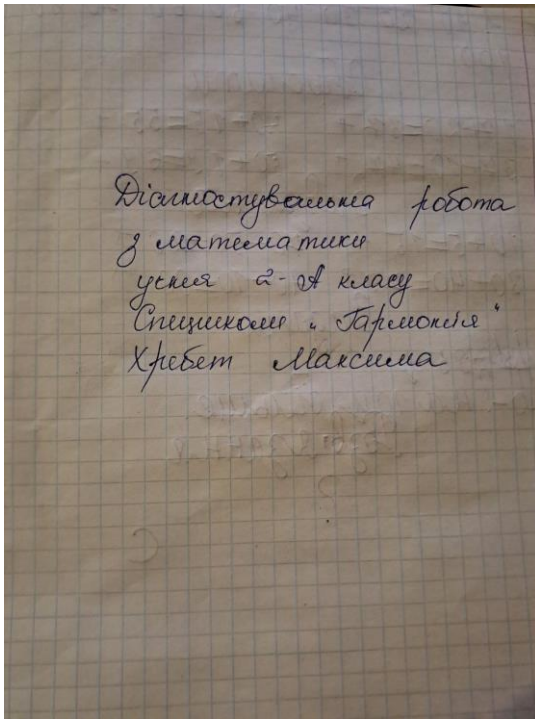 Діагностувальна робота
з математики
учня 2-А класу
Спецшколи „Гармонія"
Хребет Максима